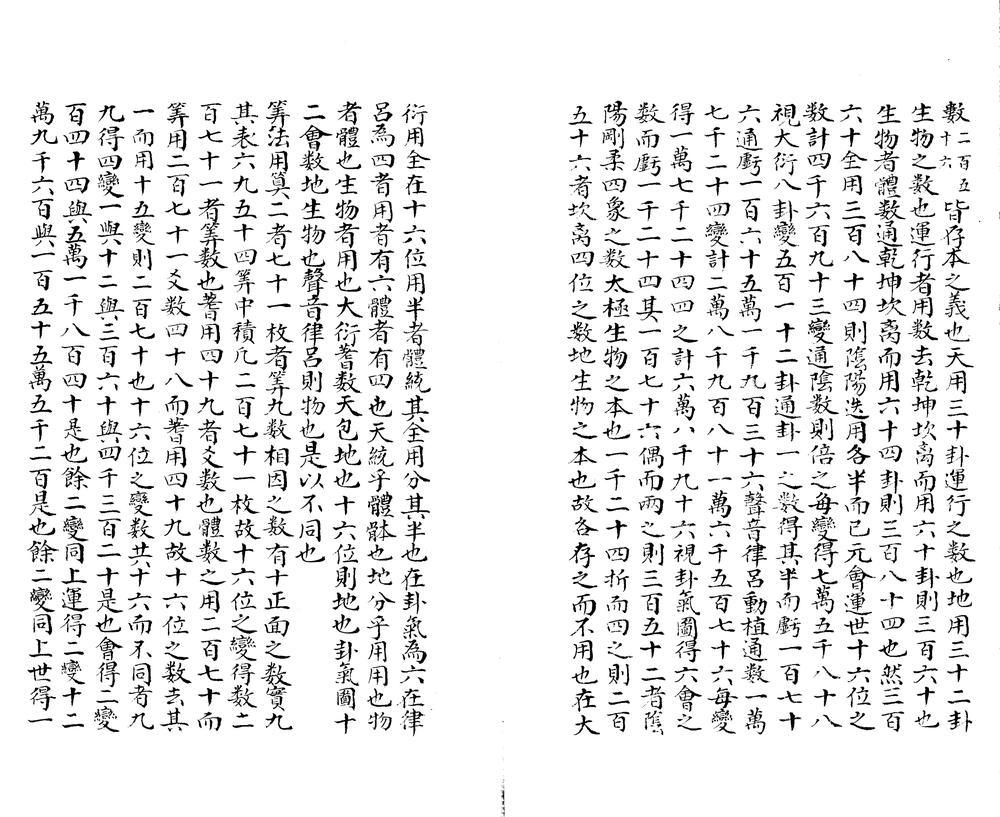 數二百五十六皆存本之義也天用三十卦運行之數也地用三十二卦
生物之數也運行者用数去乾坤坎离而用六十卦則三百六十也
生物者體数通乾坤坎离而用六十四卦則三百八十四也然三百
六十全用三百八十四則隂陽迭用各半而已元會運世十六位之
数計四千六百九十三變通隂数則倍之每變得七萬五千八十八
視大衍八卦變五百一十二卦通卦一之数得其半而虧一百七十
六通虧一百六十五萬一千九百三十六聲音律呂動植通数一萬
七千二十四變計二萬八千九百八十一萬六千五百七十六每變
得一萬七千二十四四之計六萬八千九十六視卦氣圖得六會之
数而虧一千二十四其一百七十六偶而兩之則三百五十二者隂
陽剛柔四象之数太極生物之本也一千二十四折而四之則二百
五十六者坎离四位之数地生物之本也故各存之而不用也在大
衍用全在十六位用半者體統其全用分其半也在卦氣為六在律
呂為四者用者有六體者有四也天統乎體體也地分乎用用也物
者體也生物者用也大衍蓍数天包地也十六位則地也卦氣圖十
二會数地生物也聲音律呂則物也是以不同也
筭法用筭二者七十一枚者筭九数相因之数有十正面之数實九
其表六九五十四筭中積凡二百七十一枚故十六位之變得数二
百七十一者筭数也蓍用四十九者爻数也體数之用二百七十而
筭用二百七十一爻数四十八而蓍用四十九故十六位之数去其
一而用十五變則二百七十也十六位之變数共十六而不同者九
九得四變一與十二與三百六十與四千三百二十是也會得二變
百四十四與五萬一千八百四十是也餘二變同上運得二變十二
萬九千六百與一百五十五萬五千二百是也餘二變同上世得一